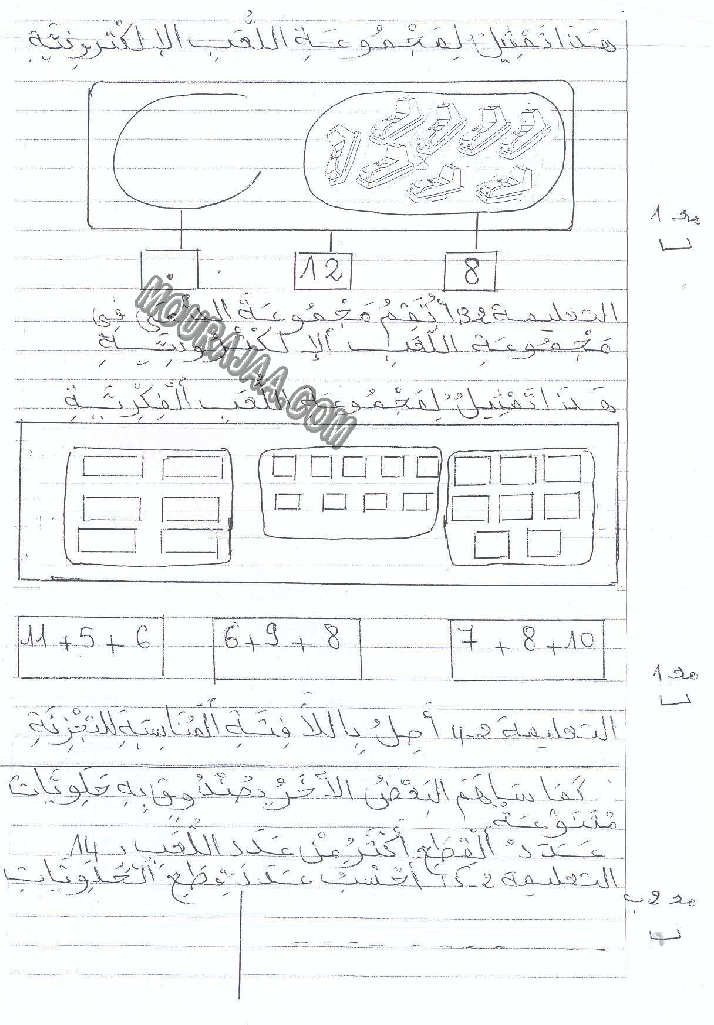 هَذَا تَمْثِيلٌ لِمَجْمُوعَةِ اللُّعَبِ الإِلِكْتْرُونِيَّةِ
. 12 8
مع 1
التعليمة 2ـ3 أُتَمِّمُ مَجْمُوعَةَ فِي
مَجْمُوعَةِ اللُّعَبِ الإِلِكْتْرُونِيَّةِ
هَذَا تَمْثِيلٌ لِمَجْمُوعَةِ اللُّعَبِ الْفِكْرِيَّةِ
MOURAJAA.COM
11 + 5 + 6 6 + 9 + 8 7 + 8 + 10
مع 1
التعليمة 2ـ4 أَصِلُ بِاللاَّفِتَةِ الْمُنَاسِبَةِ لِلتَّجْزِئَةِ
كَمَا سَاهَمَ البَعْضُ الآخَرُ بِصُنْدُوقٍ بِهِ حَلَوِيَّاتٌ
مُتَنَوِّعَةٌ
عَدَدُ الْقِطَعِ أَكْثَرُ مِنْ عَدَدِ اللُّعَبِ بـ 14
التعليمة 2ـ5 أَحْسُبُ عَدَدَ قِطَعِ الْحَلَوِيَّاتِ
مع 2 ب